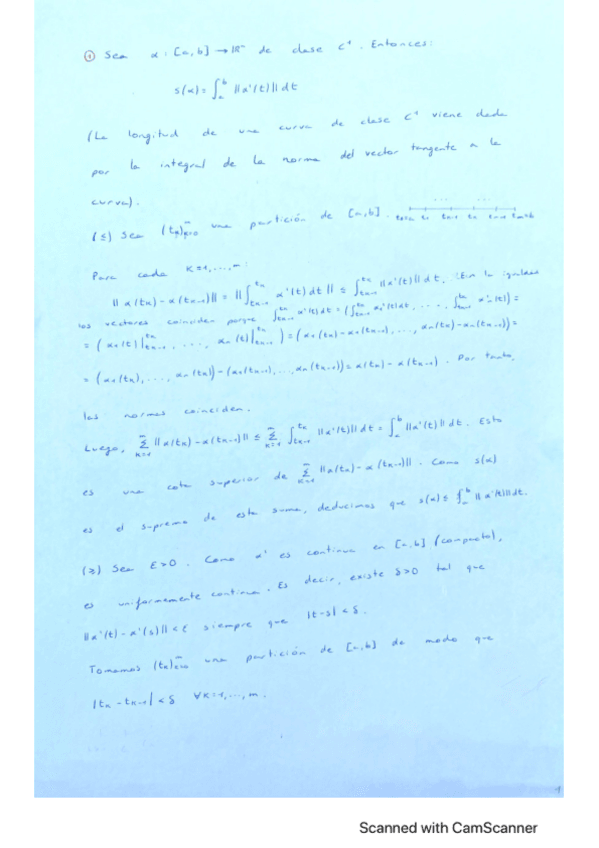 ① Sea α : [a,b] → ℝⁿ de clase C¹. Entonces:
s(α) = ∫ₐᵇ ||α'(t)|| dt
(La longitud de una curva de clase C¹ viene dada
por la integral de la norma del vector tangente a la
curva).
(≤) Sea (tₖ)ₖ₌₀ᵐ una partición de [a,b]. t₀=a t₁ tₖ₋₁ tₖ tₘ₋₁ tₘ=b
Para cada k=1,...,m:
||α(tₖ) - α(tₖ₋₁)|| = ||∫ₜₖ₋₁ᵗᵏ α'(t) dt|| ≤ ∫ₜₖ₋₁ᵗᵏ ||α'(t)|| dt. En la igualdad
los vectores coinciden porque ∫ₜₖ₋₁ᵗᵏ α'(t) dt = (∫ₜₖ₋₁ᵗᵏ α₁'(t) dt, ..., ∫ₜₖ₋₁ᵗᵏ αₙ'(t)) =
= (α₁(t)|ₜₖ₋₁ᵗᵏ, ..., αₙ(t)|ₜₖ₋₁ᵗᵏ) = (α₁(tₖ) - α₁(tₖ₋₁), ..., αₙ(tₖ) - αₙ(tₖ₋₁)) =
= (α₁(tₖ), ..., αₙ(tₖ)) - (α₁(tₖ₋₁), ..., αₙ(tₖ₋₁)) = α(tₖ) - α(tₖ₋₁). Por tanto,
las normas coinciden.
Luego, Σₖ₌₁ᵐ ||α(tₖ) - α(tₖ₋₁)|| ≤ Σₖ₌₁ᵐ ∫ₜₖ₋₁ᵗᵏ ||α'(t)|| dt = ∫ₐᵇ ||α'(t)|| dt. Esto
es una cota superior de Σₖ₌₁ᵐ ||α(tₖ) - α(tₖ₋₁)||. Como s(α)
es el supremo de esta suma, deducimos que s(α) ≤ ∫ₐᵇ ||α'(t)|| dt.
(≥) Sea ε>0. Como α' es continua en [a,b] (compacto),
es uniformemente continua. Es decir, existe δ>0 tal que
||α'(t) - α'(s)|| < ε siempre que |t-s| < δ.
Tomamos (tₖ)ₖ₌₀ᵐ una partición de [a,b] de modo que
|tₖ - tₖ₋₁| < δ ∀k=1,...,m.
1
Scanned with CamScanner